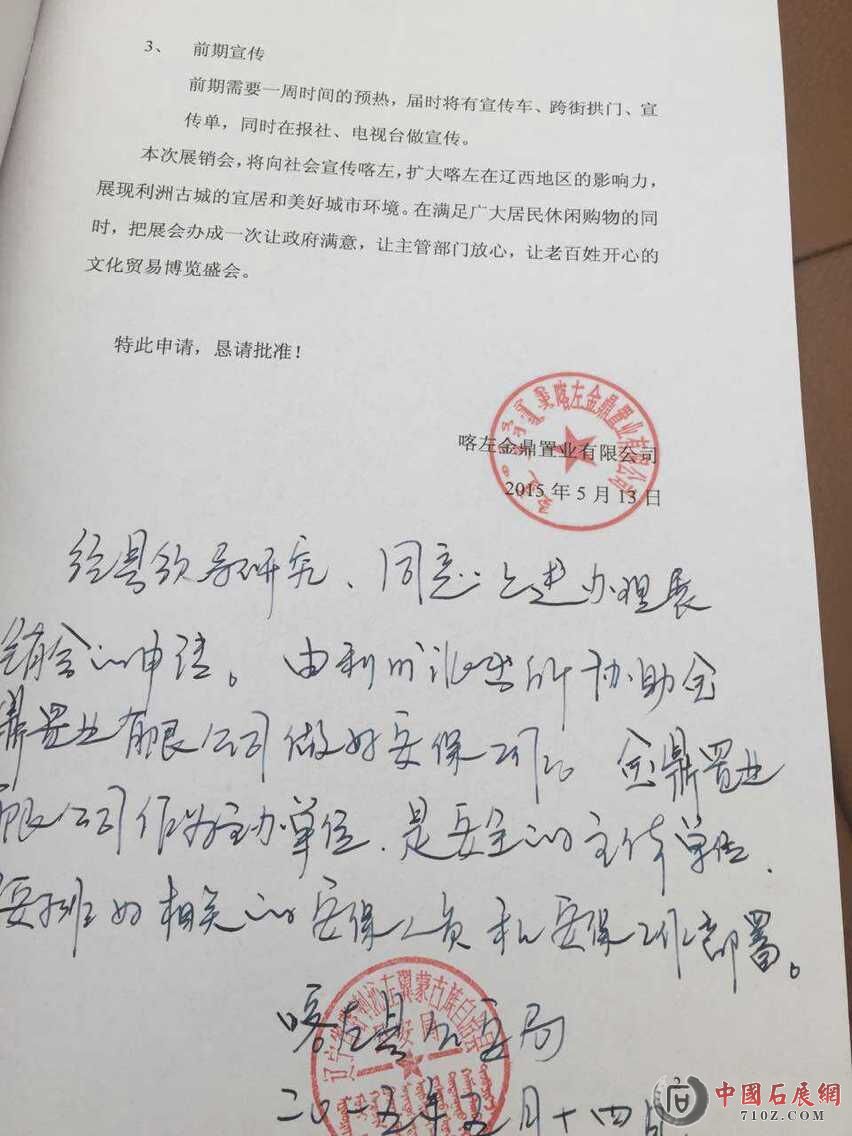 3、 前期宣传
前期需要一周时间的预热，届时将有宣传车、跨街拱门、宣
传单，同时在报社、电视台做宣传。
本次展销会，将向社会宣传喀左，扩大喀左在辽西地区的影响力，
展现利洲古城的宜居和美好城市环境。在满足广大居民休闲购物的同
时，把展会办成一次让政府满意，让主管部门放心，让老百姓开心的
文化贸易博览盛会。
特此申请，恳请批准！
喀左金鼎置业有限公司
喀左金鼎置业有限公司
2015 年 5 月 13 日
经县领导研究、同意上述办理展
销会的申请。由利州派出所协助金
鼎置业有限公司做好安保工作。金鼎置业
有限公司作为主办单位，是安全的主体单位，
要排好相关的安保人员和安保工作部署。
喀左县公安局
二〇一五年五月十四日
2
中國石展網
710Z.COM